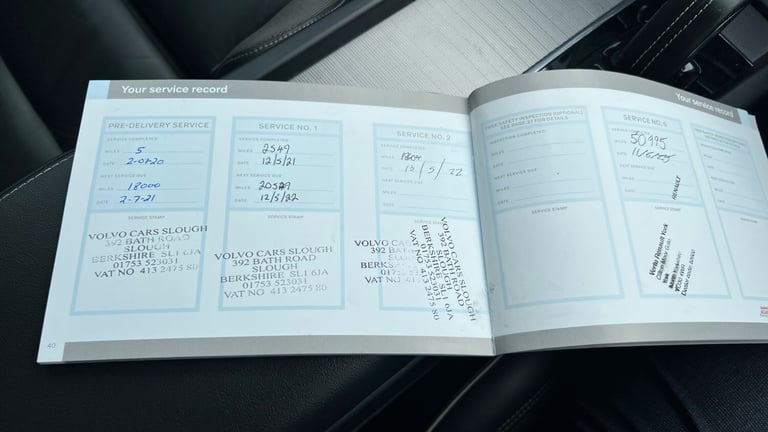 Your service record
PRE-DELIVERY SERVICE
SERVICE COMPLETED
MILES 5
DATE 2-07-20
NEXT SERVICE DUE
MILES 18000
DATE 2-7-21
SERVICE STAMP
VOLVO CARS SLOUGH
392 BATH ROAD
SLOUGH
BERKSHIRE SL1 6JA
01753 523031
VAT NO 413 2475 80
40
SERVICE NO. 1
SERVICE COMPLETED
MILES 2549
DATE 12/5/21
NEXT SERVICE DUE
MILES 20549
DATE 12/5/22
SERVICE STAMP
VOLVO CARS SLOUGH
392 BATH ROAD
SLOUGH
BERKSHIRE SL1 6JA
01753 523031
VAT NO 413 2475 80
SERVICE NO. 2
SERVICE COMPLETED
MILES
DATE 13/5/22
NEXT SERVICE DUE
MILES
DATE
SERVICE STAMP
VOLVO CA
392 BA
BERKS
VAT N
VOLVO CARS SLOUGH
392 BATH ROAD
SLOUGH
BERKSHIRE SL1 6JA
01753 523031
VAT NO 413 2475 80
Your service record
FREE SAFETY INSPECTION (OPTIONAL)
SEE PAGE 37 FOR DETAILS
INSPECTION COMPLETED
MILES
DATE
NEXT SERVICE DUE
MILES
DATE
SERVICE STAMP
SERVICE NO. 6
MILES 50995
DATE
NEXT SERVICE DUE
MILES
DATE
RENAULT
SERVICE STAMP
Vertu Renault York
York